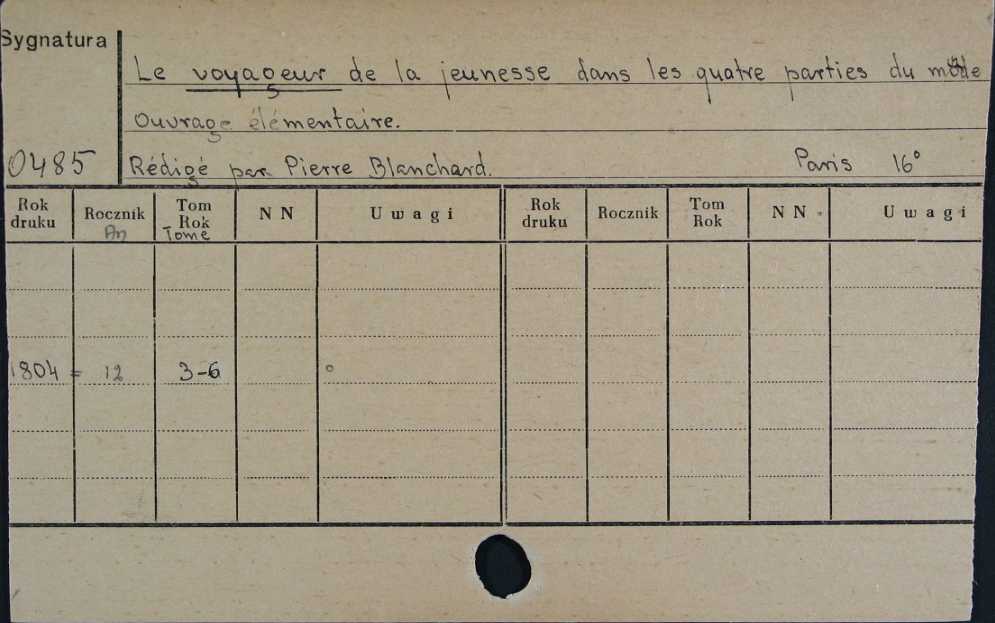 Sygnatura
Le voyageur de la jeunesse dans les quatre parties du monde
Ouvrage élémentaire.
0485 Rédigé par Pierre Blanchard. Paris 16°
Rok druku Rocznik Tom Rok N N Uwagi Rok druku Rocznik Tom Rok N N Uwagi
An Tome
1804 = 12 3-6 °